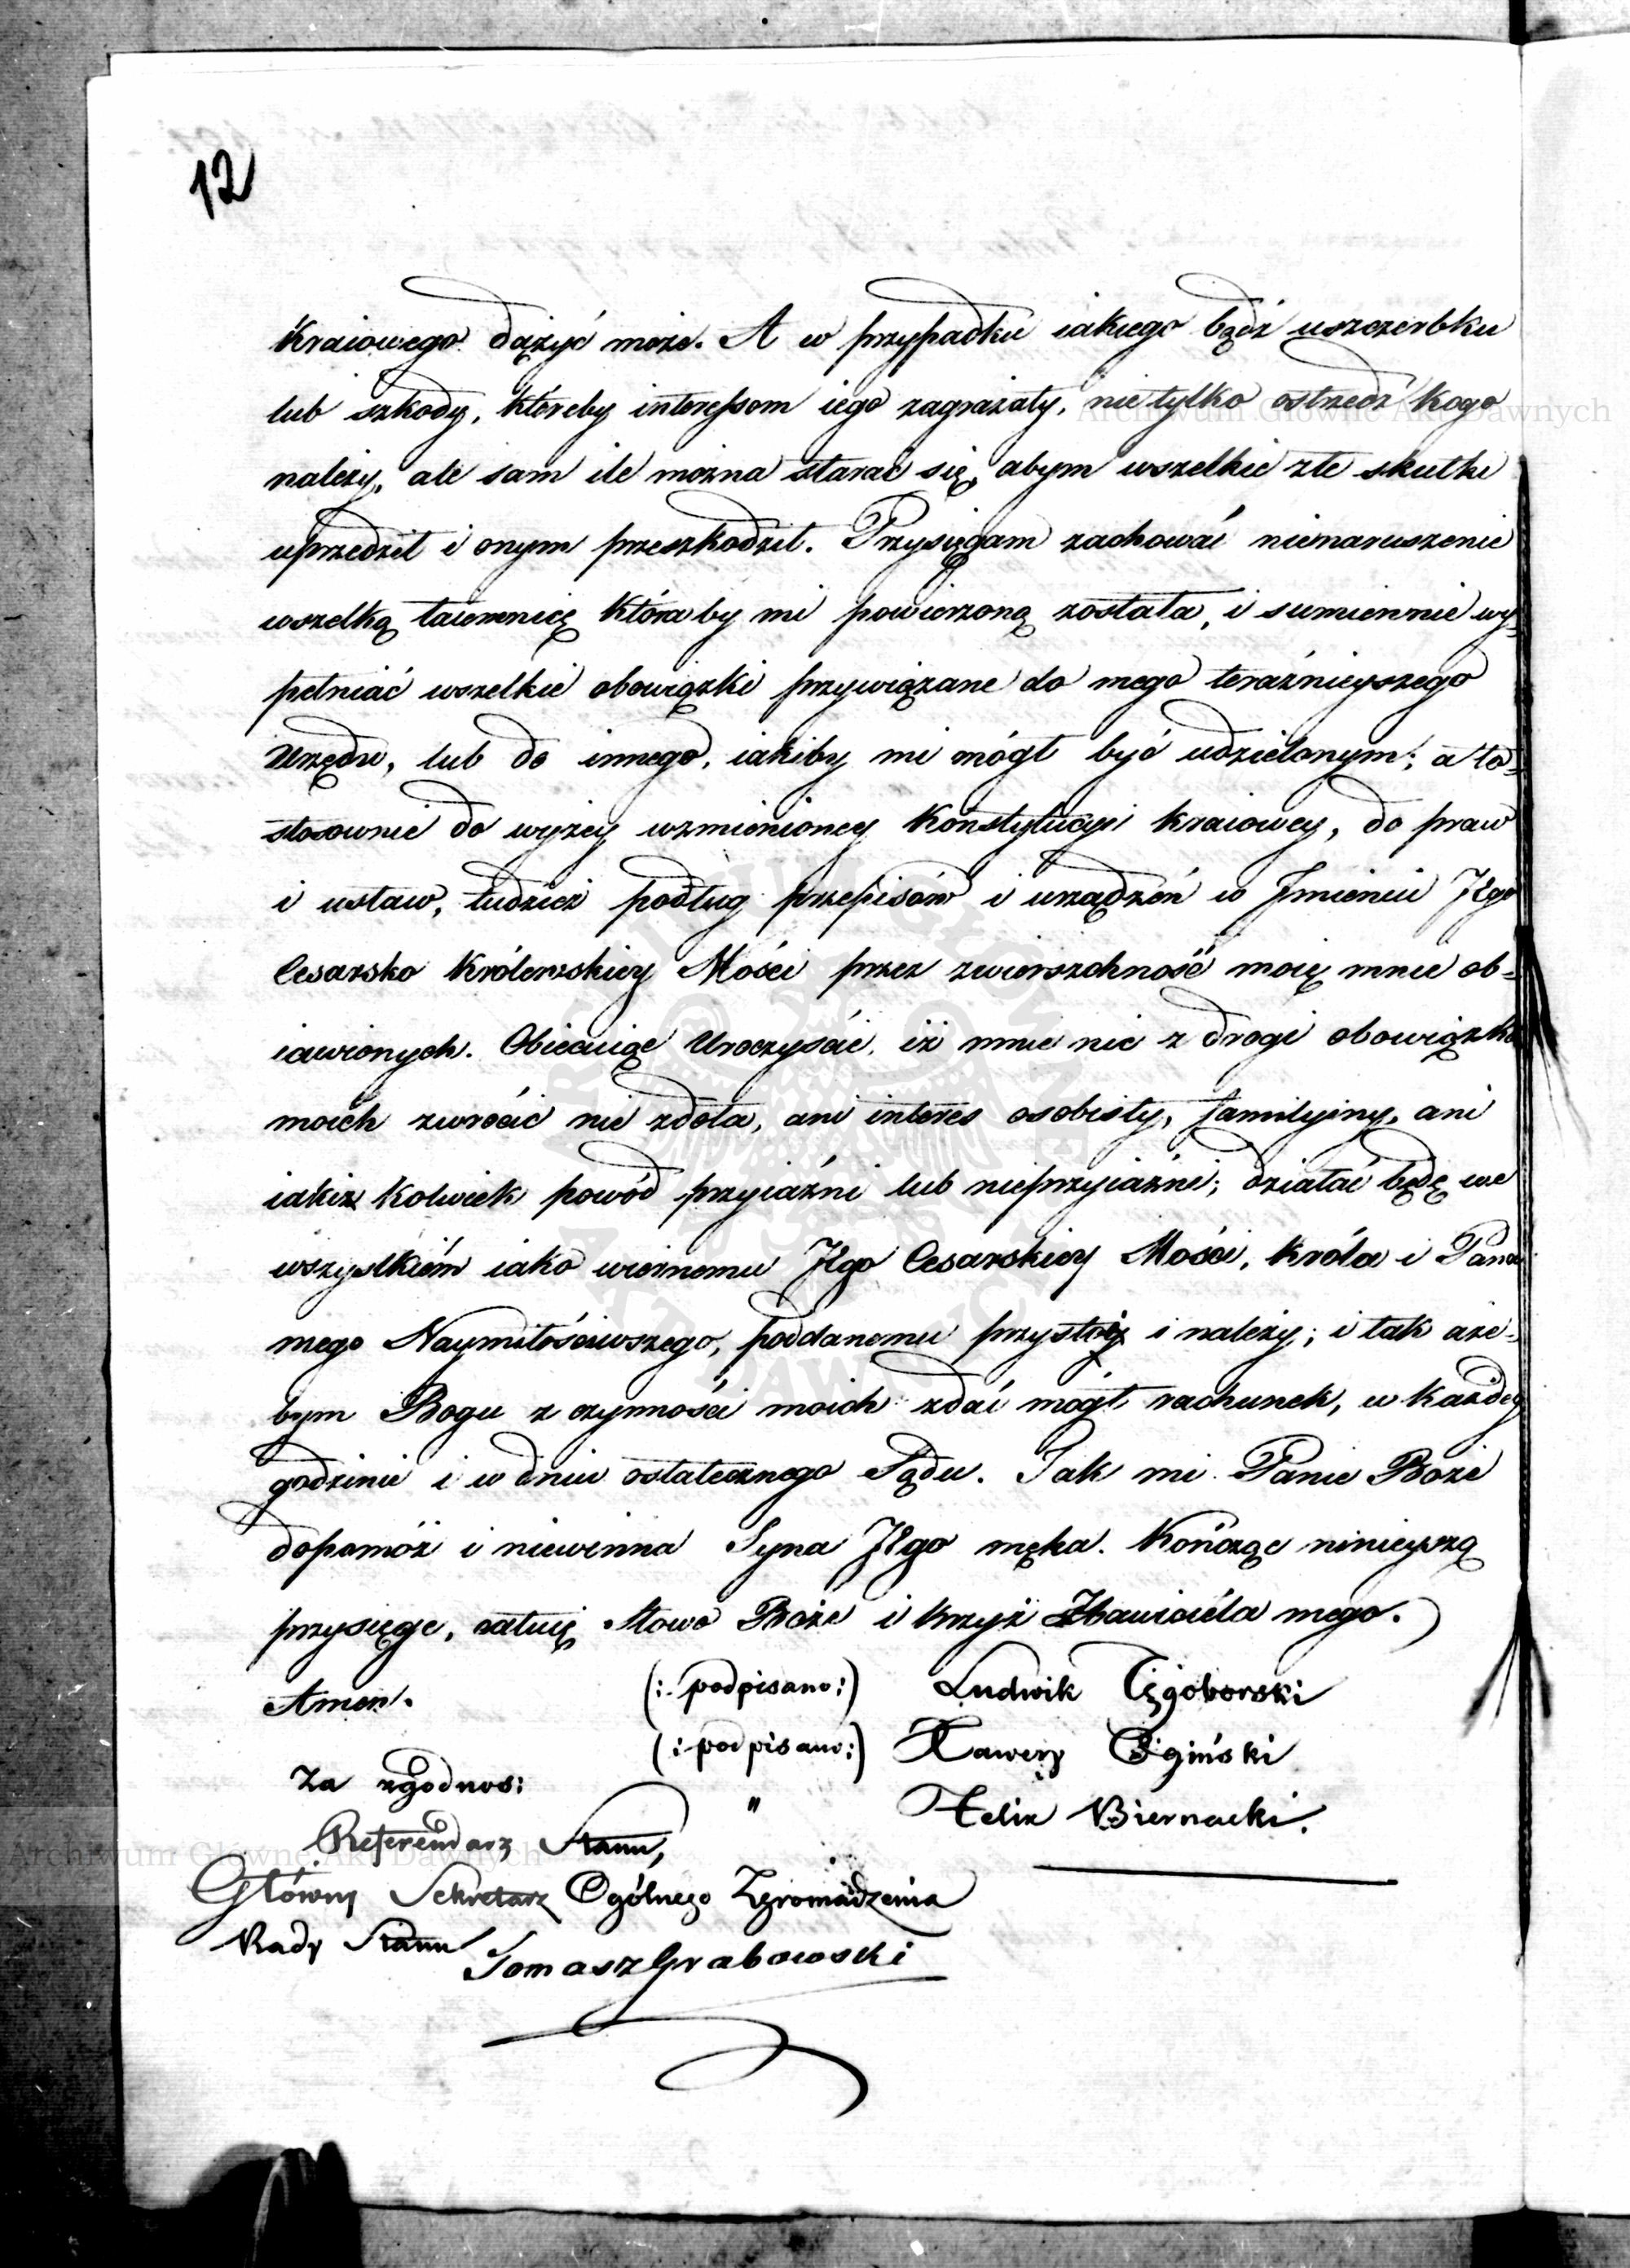 12
Kraiowego dążyć może. A w przypadku iakiego bądź uszczerbku
lub szkody, któreby interessom iego zagrażały, nie tylko ostrzedz kogo
należy, ale sam ile można starać się, abym wszelkie złe skutki
uprzedził i onym przeszkodził. Przysięgam zachować nienaruszenie
wszelką taiemnicę któraby mi powierzoną została, i sumiennie wy-
pełniać wszelkie obowiązki przywiązane do mego teraźnieyszego
Urzędu, lub do innego, iakiby mi mógł być udzielonym; a to-
stosownie do wyżey wzmienioney Konstytucyi kraiowey, do praw
i ustaw, tudzież podług przepisów i urządzeń w Jmieniu JEgo
Cesarsko Królewskiey Mości przez zwierzchność moię mnie ob-
iawionych. Obiecuię Uroczyście, iż mnie nic z drogi obowiązków
moich zwrócić nie zdoła, ani interes osobisty, familyiny, ani
iakiż kolwiek powód przyiaźni lub nieprzyiaźni; działać będę we
wszystkiém iako wiernemu JEgo Cesarskiey Mości, Króla i Pana
mego Naymiłościwszego, poddanemu przystoi i należy; i tak aże-
bym Bogu z czynności moich zdać mógł rachunek, w każdey
godzinie i w dniu ostatecznego Sądu. Tak mi Panie Boże
dopomóż i niewinna Syna JEgo męka. Kończąc ninieyszą
przysięgę, całuię Słowo Boże i Krzyż Zbawiciela mego.
Amen. (: podpisano :) Ludwik Tęgoborski
(: podpisano :) Xawery Ogiński
Za zgodnos: " Felix Biernacki.
Referendarz Stanu,
Główny Sekretarz Ogólnego Zgromadzenia
Rady Stanu Tomasz Grabowski
Archiwum Główne Akt Dawnych
Archiwum Główne Akt Dawnych
ARCHIWUM GŁÓWNE AKT DAWNYCH